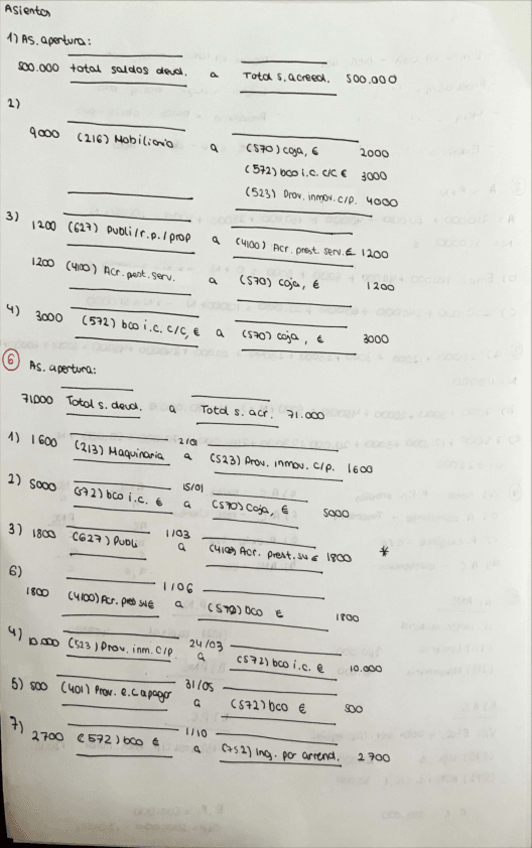 Asientos
1) As. apertura:
500.000 total saldos deud. a Total s. acreed. 500.000
2)
9000 (216) Mobiliario a (570) caja, € 2000
(572) bco i.c. c/c € 3000
(523) Prov. inmov. c/p. 4000
3)
1200 (627) Publi/r.p./prop a (4100) Acr. prest. serv. € 1200
1200 (4100) Acr. prest. serv. a (570) caja, € 1200
4) 3000 (572) bco i.c. c/c, € a (570) caja, € 3000
6 As. apertura:
71000 Total s. deud. a Total s. acr. 71.000
2/01
1) 1600 (213) Maquinaria a (523) Prov. inmov. c/p. 1600
15/01
2) 5000 (572) bco i.c. € a (570) caja, € 5000
1/03
3) 1800 (627) Publi a (4100) Acr. prest. sv € 1800 *
6) 1/06
1800 (4100) Acr. pres sv€ a (572) bco € 1800
24/03
4) 10.000 (523) Prov. inm. c/p. a (572) bco i.c. € 10.000
31/05
5) 500 (401) Prov. e.c a pagar a (572) bco € 500
1/10
7) 2700 (572) bco € a (752) Ing. por arrend. 2700